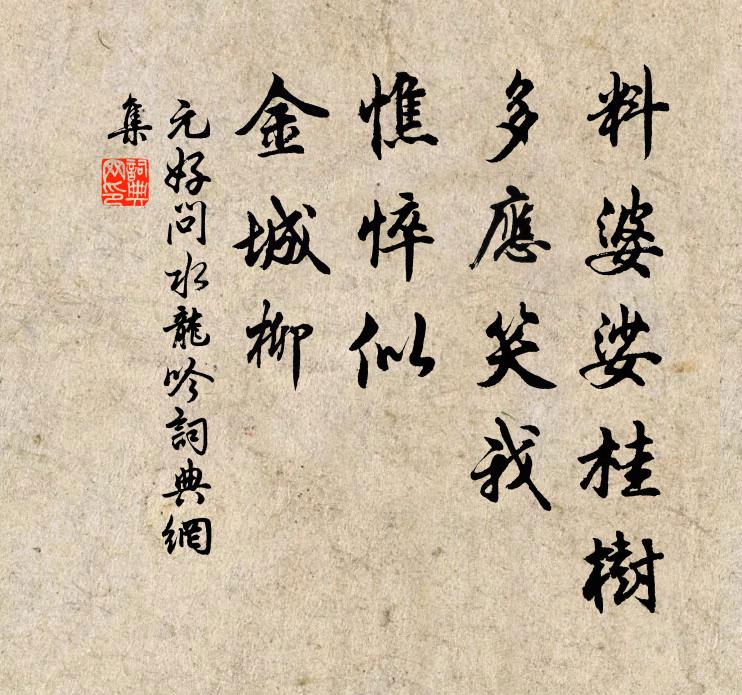 料婆娑桂樹
多應笑我
憔悴似
金城柳
元好問水龍吟詞典網
集
詞典
網印